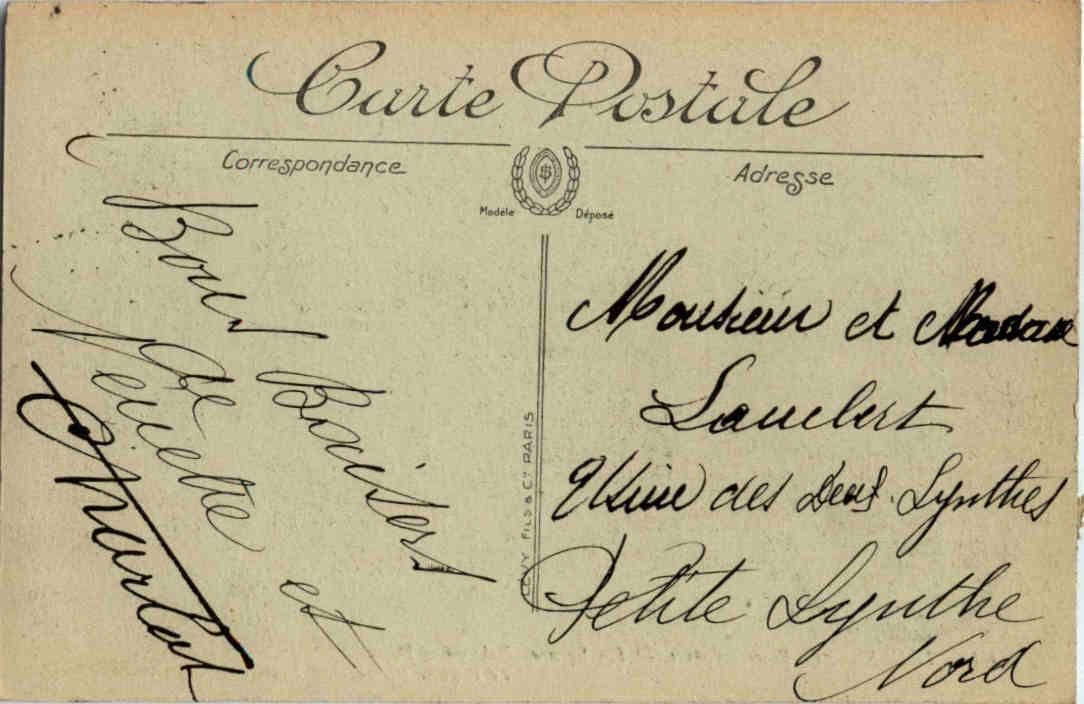 Carte Postale
Correspondance
Adresse
Modèle Déposé
Bons Baisers
de
et
LEVY FILS & Cie PARIS
Monsieur et Madame
Lambert
Usine des Deux Synthes
Petite Synthe
Nord